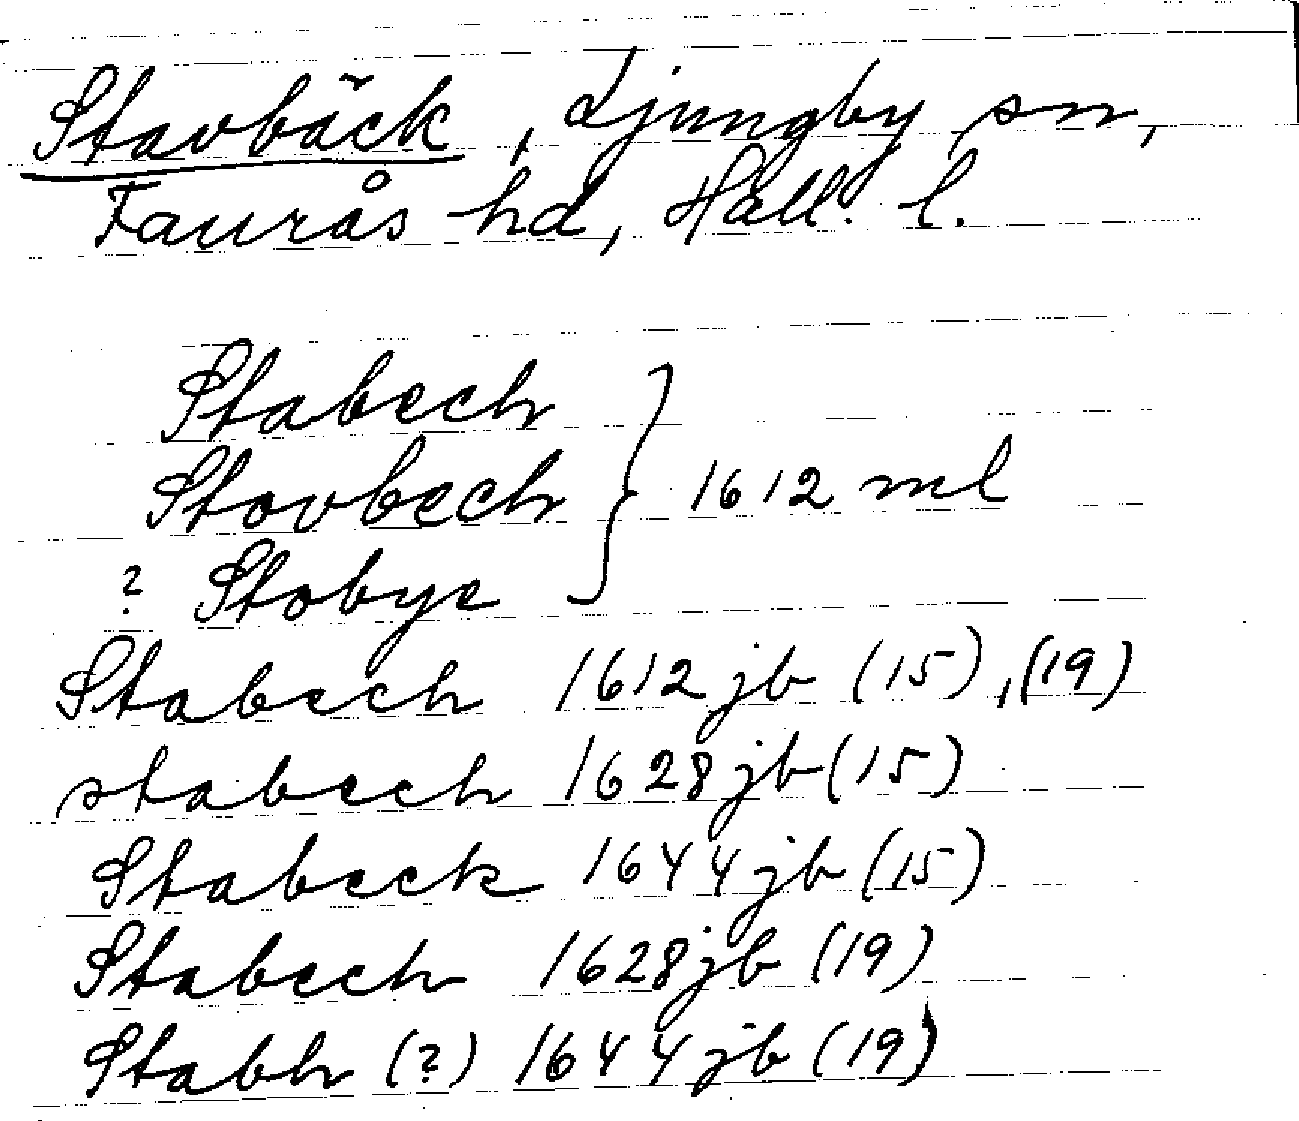 Stavbäck, Ljungby sn,
Faurås hd, Hall. l.
Stabech
Stovbech } 1612 ml
? Stobye
Stabech 1612 jb (15), (19)
stabech 1628 jb (15)
Stabeck 1644 jb (15)
Stabech 1628 jb (19)
Stabh (?) 1644 jb (19)